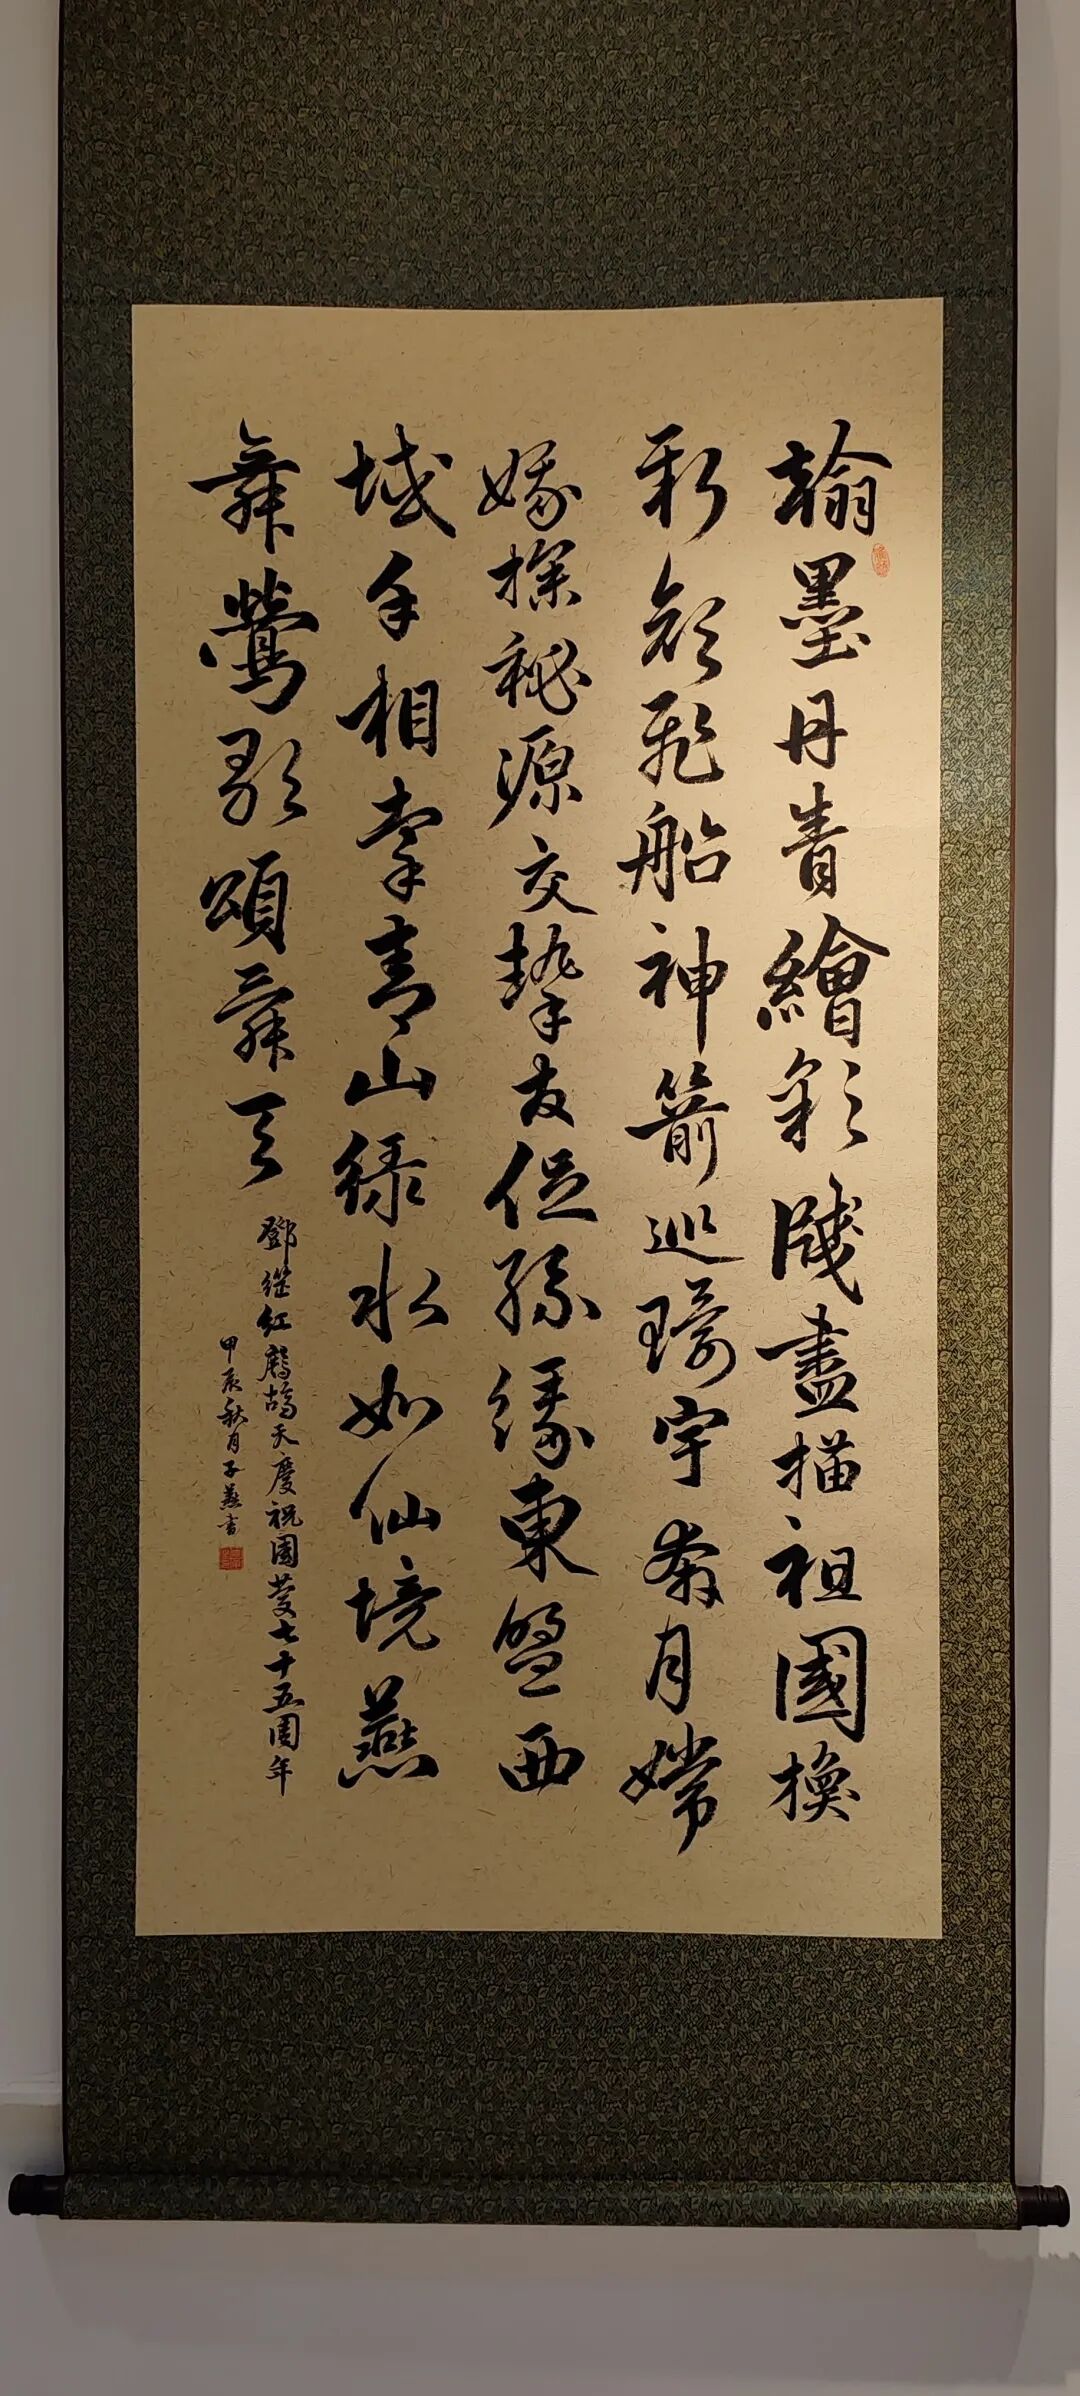 翰墨丹青繪彩牋盡描祖國換
新顏飛船神箭巡琦宇奔月嫦
娥探秘源交摯友促孫緣東盟西
域手相牽青山綠水如仙境燕
舞鶯歌頌舜天
鄧继红鷓鴣天慶祝國慶七十五周年
甲辰秋月子燕書